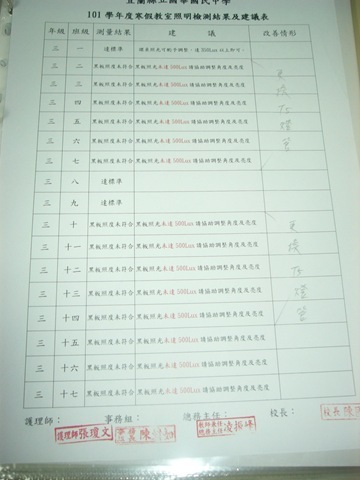 宜蘭縣立國華國民中學
101 學年度寒假教室照明檢測結果及建議表
年級 班級 測量結果 建 議 改善情形
三 一 達標準
三 二 黑板照度未符合 黑板照光未達 500Lux 請協助調整角度及亮度
三 三 黑板照度未符合 黑板照光未達 500Lux 請協助調整角度及亮度
三 四 黑板照度未符合 黑板照光未達 500Lux 請協助調整角度及亮度
三 五 黑板照度未符合 黑板照光未達 500Lux 請協助調整角度及亮度
三 六 黑板照度未符合 黑板照光未達 500Lux 請協助調整角度及亮度
三 七 黑板照度未符合 黑板照光未達 500Lux 請協助調整角度及亮度
三 八 達標準
三 九 達標準
三 十 黑板照度未符合 黑板照光未達 500Lux 請協助調整角度及亮度
三 十一 黑板照度未符合 黑板照光未達 500Lux 請協助調整角度及亮度
三 十二 黑板照度未符合 黑板照光未達 500Lux 請協助調整角度及亮度
三 十三 黑板照度未符合 黑板照光未達 500Lux 請協助調整角度及亮度
三 十四 黑板照度未符合 黑板照光未達 500Lux 請協助調整角度及亮度
三 十五 黑板照度未符合 黑板照光未達 500Lux 請協助調整角度及亮度
三 十六 黑板照度未符合 黑板照光未達 500Lux 請協助調整角度及亮度
三 十七 黑板照度未符合 黑板照光未達 500Lux 請協助調整角度及亮度
更
換
燈
管
更
換
燈
管
護理師: 事務組: 總務主任: 校長:
護理師張瓊文